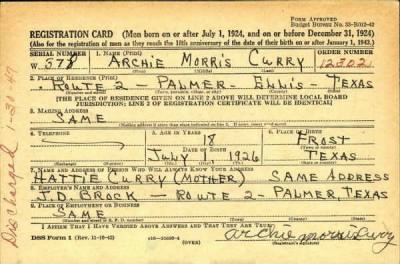 Form Approved
Budget Bureau No. 33-R012-42
REGISTRATION CARD (Men born on or after July 1, 1924, and on or before December 31, 1924)
(Also for the registration of men as they reach the 18th anniversary of the date of their birth on or after January 1, 1943.)
SERIAL NUMBER 1. NAME (Print) ORDER NUMBER
W. 378 ARCHIE MORRIS CURRY 12302
(First) (Middle) (Last)
2. PLACE OF RESIDENCE (Print)
ROUTE 2 PALMER - ELLIS - TEXAS
[THE PLACE OF RESIDENCE GIVEN ON LINE 2 ABOVE WILL DETERMINE LOCAL BOARD
JURISDICTION; LINE 2 OF REGISTRATION CERTIFICATE WILL BE IDENTICAL]
3. MAILING ADDRESS
SAME
4. TELEPHONE 5. AGE IN YEARS 6. PLACE OF BIRTH
18 FROST
DATE OF BIRTH
JULY 1926 TEXAS
7. NAME AND ADDRESS OF PERSON WHO WILL ALWAYS KNOW YOUR ADDRESS
HATTIE CURRY (MOTHER) SAME ADDRESS
8. EMPLOYER'S NAME AND ADDRESS
J.D. BROCK - ROUTE 2 - PALMER, TEXAS
9. PLACE OF EMPLOYMENT OR BUSINESS
SAME
I AFFIRM THAT I HAVE VERIFIED ABOVE ANSWERS AND THAT THEY ARE TRUE.
DSS Form 1 (Rev. 11-16-42) (OVER) Archie Morris Curry
Discharged